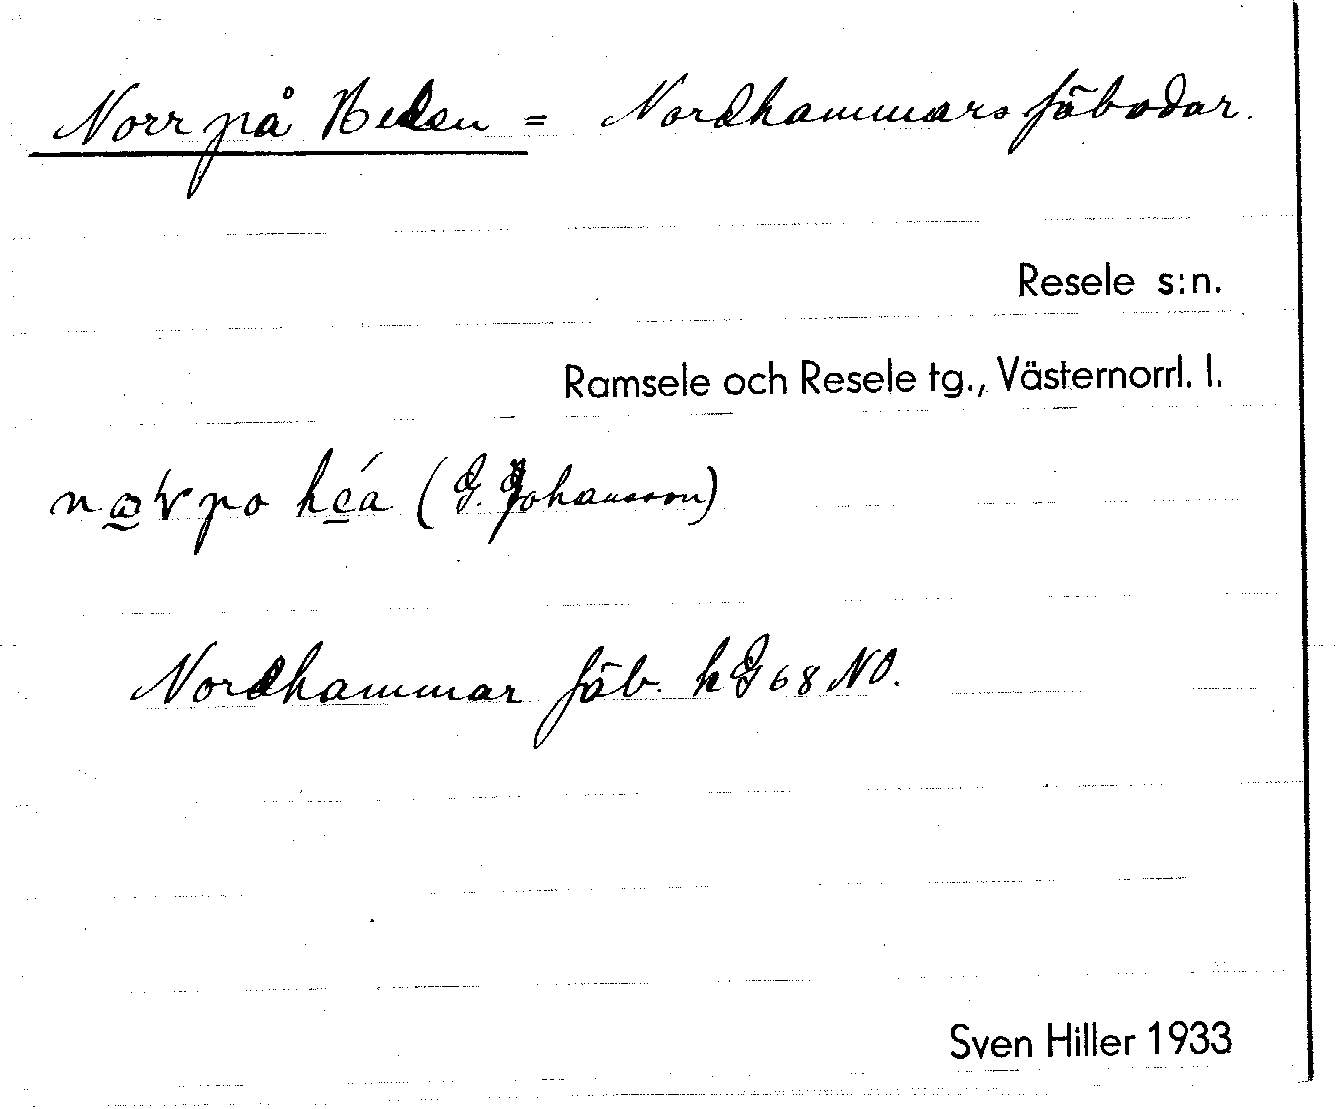 Norr på Heden = Nordhammars fäbodar.
Resele s:n.
Ramsele och Resele tg., Västernorrl. l.
po (G. Johansson)
Nordhammar fäb. kG 68 NO.
Sven Hiller 1933